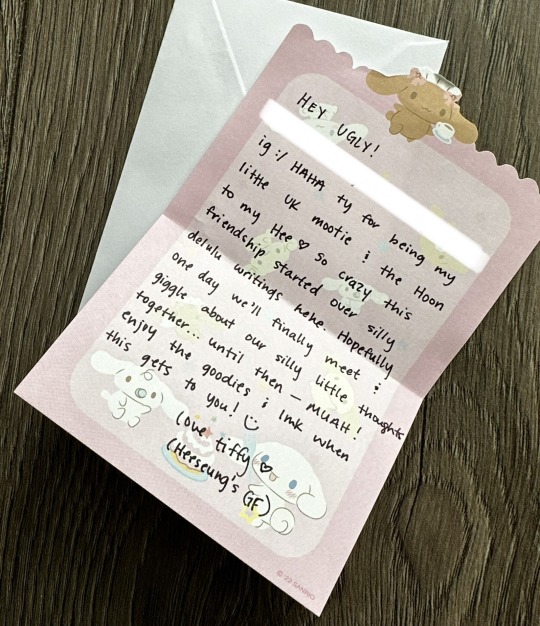 HEY UGLY!
ig :/ HAHA ty for being my
little UK mootie & the Hoon
to my Hee ♡ So crazy this
friendship started over silly
delulu writings hehe. Hopefully
one day we'll finally meet &
giggle about our silly little thoughts
together... until then — MUAH!
enjoy the goodies & lmk when
this gets to you! ☺
love tiffy ♡
(Heeseung's GF)
SANRIO